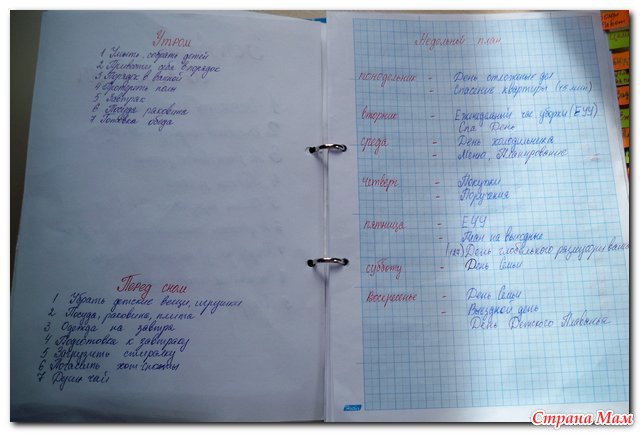 Утром
1 Умыть, собрать детей
2 Привести себя в порядок
3 Порядок в ванной
4 Протереть полы
5 Завтрак
6 Посуда раковина
7 Готовка обеда
Перед сном
1 Убрать детские вещи, игрушки
2 Посуда, раковина, плита
3 Одежда на завтра
4 Подготовка к завтраку
5 Загрузить стиралку
6 Почистить
7 Душ чай
Недельный план
понедельник - День отложеных дел
- Спасение квартиры (15 мин)
вторник - Еженедельный час уборки (ЕЧУ)
Спа День
среда - День холодильника
- Меню, Планирование
четверг - Покупки
- Поручения
пятница - ЕЧУ
- План на выходные
День глобального
суббота - День Семьи
воскресенье - День Семьи
- Выездной день
День Детского Плаванья
Страна Мам